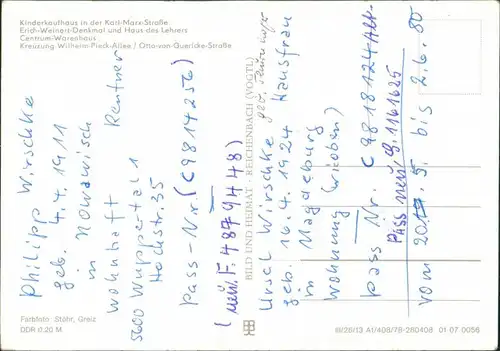 Kinderkaufhaus in der Karl-Marx-Straße
Erich-Weinert-Denkmal und Haus des Lehrers
Centrum-Warenhaus
Kreuzung Wilhelm-Pieck-Allee / Otto-von-Guericke-Straße
Philipp Wirschke
geb. 4.4.1911
in Nowawisch
wohnhaft Rentner
5600 Wuppertal 1
Hochstr. 35
Pass-Nr. (C9814256)
(neu! F. 4879448)
BILD UND HEIMAT · REICHENBACH (VOGTL)
Ursel Wirschke geb.
geb. 16.4.1924 Hausfrau
in Magdeburg
Wohnung (wie oben)
Pass Nr. C 9818124 Alt
Pass neu! G. 1161625
vom 20. 5. bis 2.6.80
Farbfoto: Stöhr, Greiz
DDR 0,20 M
III/26/13 At/408/78-280408 01 07 0056